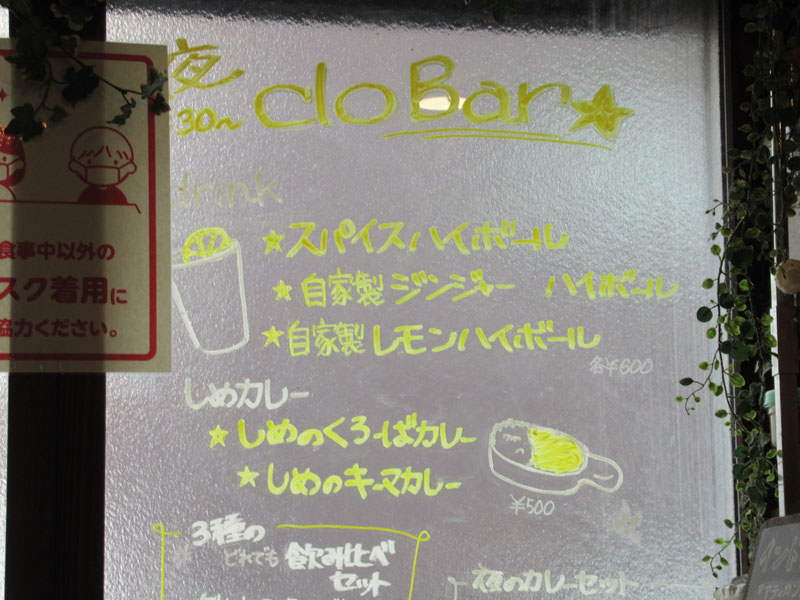 夜 cloBar★
30~
drink
★スパイスハイボール
★自家製ジンジャー ハイボール
★自家製レモンハイボール
各¥600
しめカレー
★しめのくろーばカレー
★しめのキーマカレー
¥500
3種の
どれでも 飲み比べ
セット
夜のカレーセット
食事中以外の
スク着用に
協力ください。